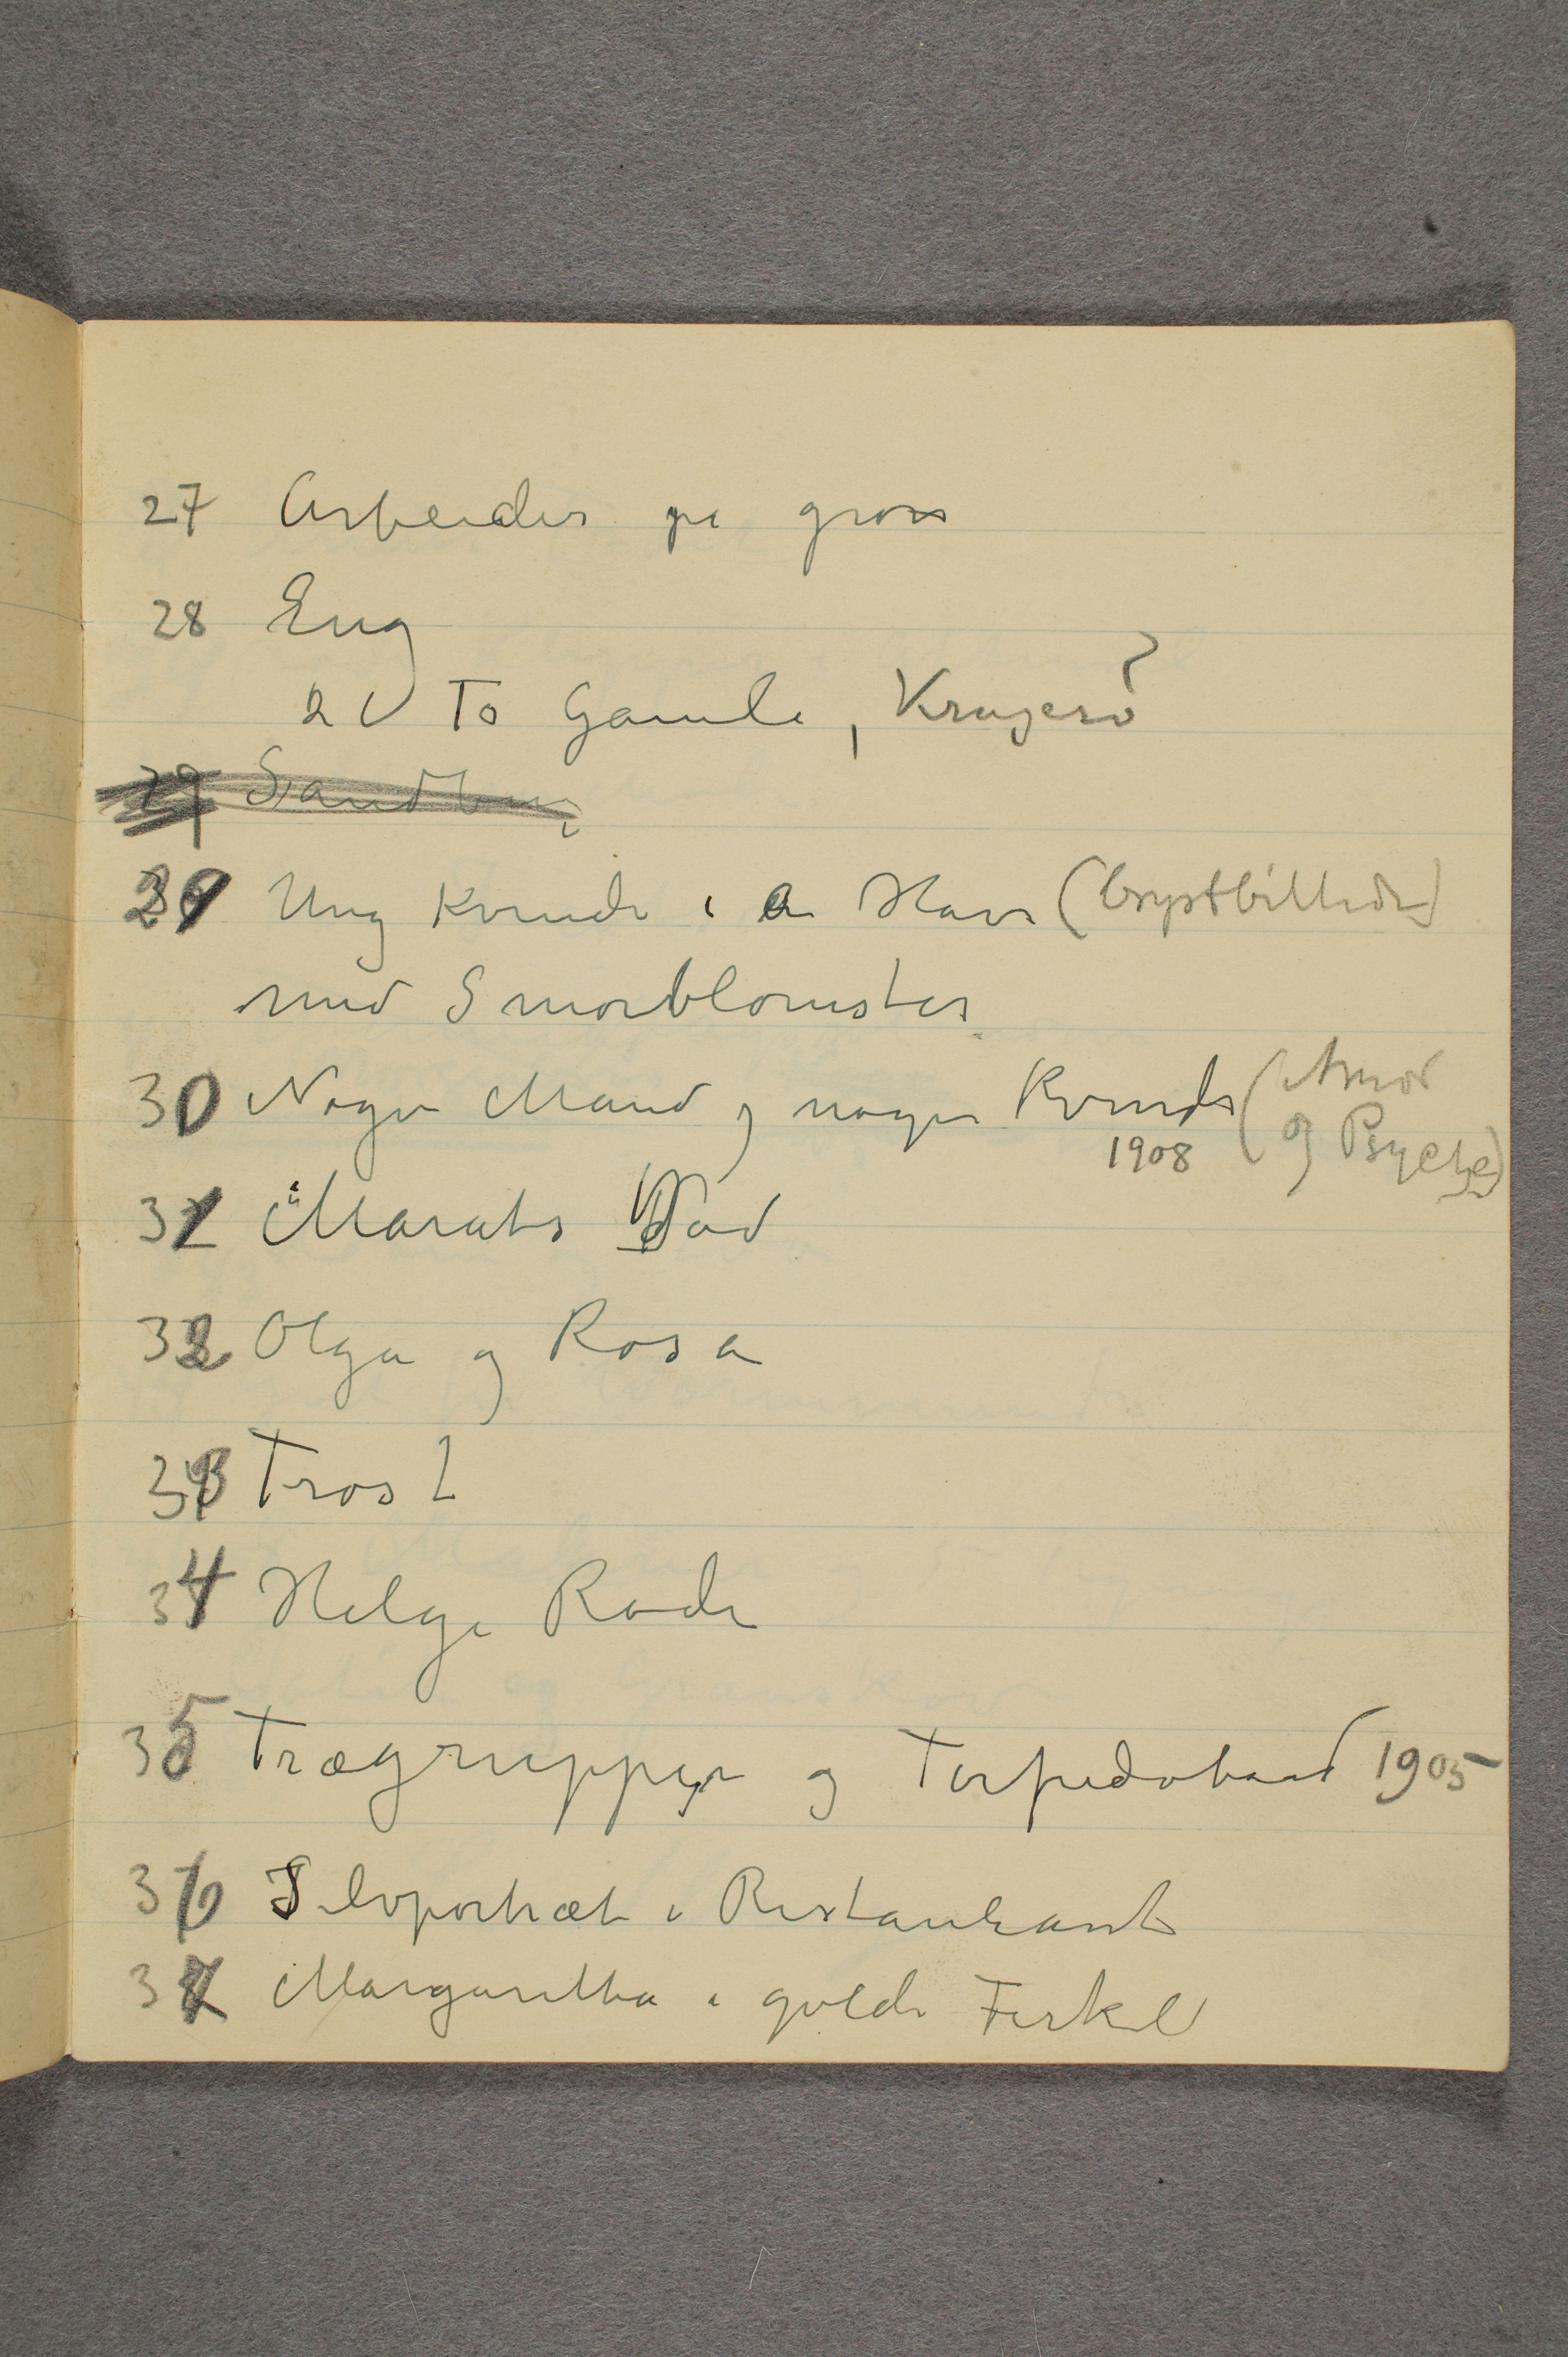 27 Arbeider på græss
28 Eng
2 V To Gamle, Kragerø
29 Sandbru
29 Ung Kvinde i en Have (brystbillede)
med Smørblomster
30 Nøgen Mand og nøgen Kvinde (Amor
1908 og Psyche)
31 Marats Død
32 Olga og Rosa
33 Trøst
34 Helge Rode
35 Trægrupper og Torpedobaad 1905
36 Selvportræt i Restaurant
37 Margaretha i